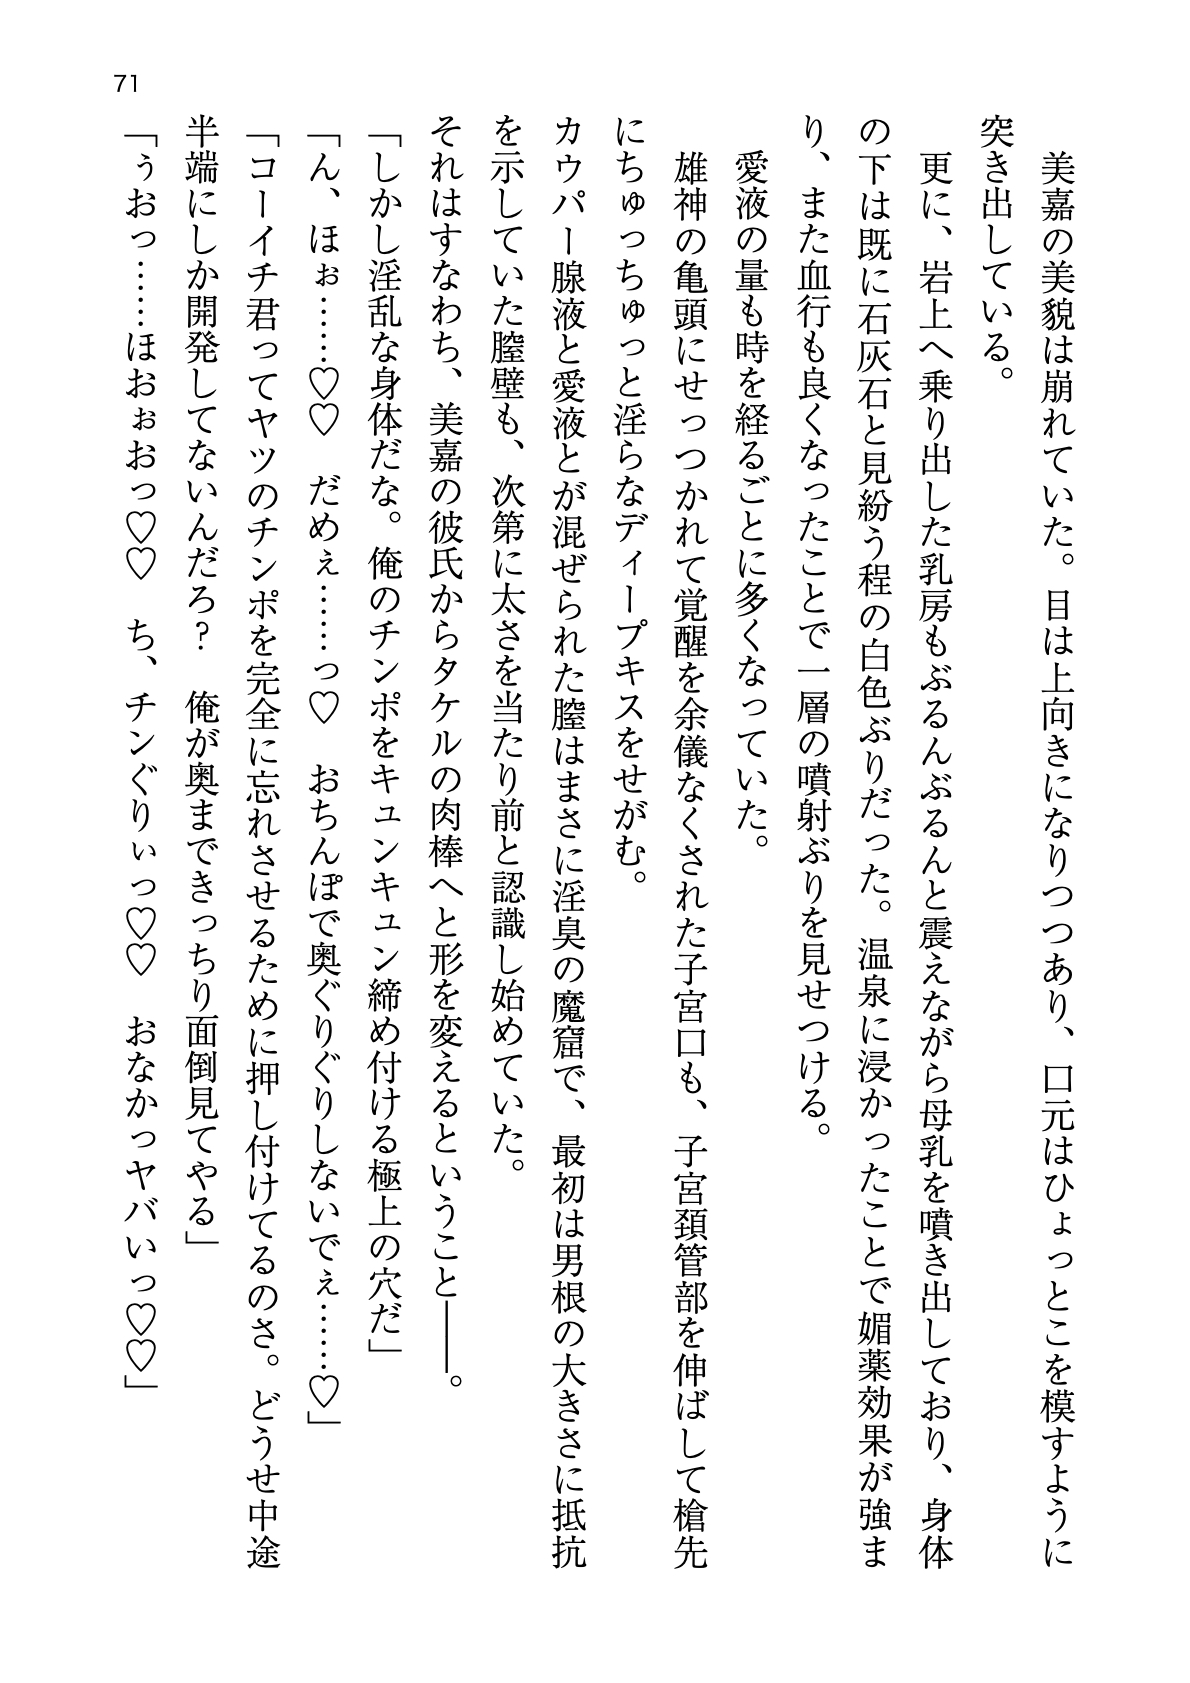 71
　美嘉の美貌は崩れていた。目は上向きになりつつあり、口元はひょっとこを模すように
突き出している。
　更に、岩上へ乗り出した乳房もぶるんぶるんと震えながら母乳を噴き出しており、身体
の下は既に石灰石と見紛う程の白色ぶりだった。温泉に浸かったことで媚薬効果が強ま
り、また血行も良くなったことで一層の噴射ぶりを見せつける。
　愛液の量も時を経るごとに多くなっていた。
　雄神の亀頭にせっつかれて覚醒を余儀なくされた子宮口も、子宮頚管部を伸ばして槍先
にちゅっちゅっと淫らなディープキスをせがむ。
カウパー腺液と愛液とが混ぜられた膣はまさに淫臭の魔窟で、最初は男根の大きさに抵抗
を示していた膣壁も、次第に太さを当たり前と認識し始めていた。
それはすなわち、美嘉の彼氏からタケルの肉棒へと形を変えるということ――。
「しかし淫乱な身体だな。俺のチンポをキュンキュン締め付ける極上の穴だ」
「ん、ほぉ……♡♡　だめぇ……っ♡　おちんぽで奥ぐりぐりしないでぇ……♡」
「コーイチ君ってヤツのチンポを完全に忘れさせるために押し付けてるのさ。どうせ中途
半端にしか開発してないんだろ？　俺が奥まできっちり面倒見てやる」
「ぅおっ……ほおぉおっ♡♡　ち、チンぐりぃっ♡♡　おなかっヤバいっ♡♡」